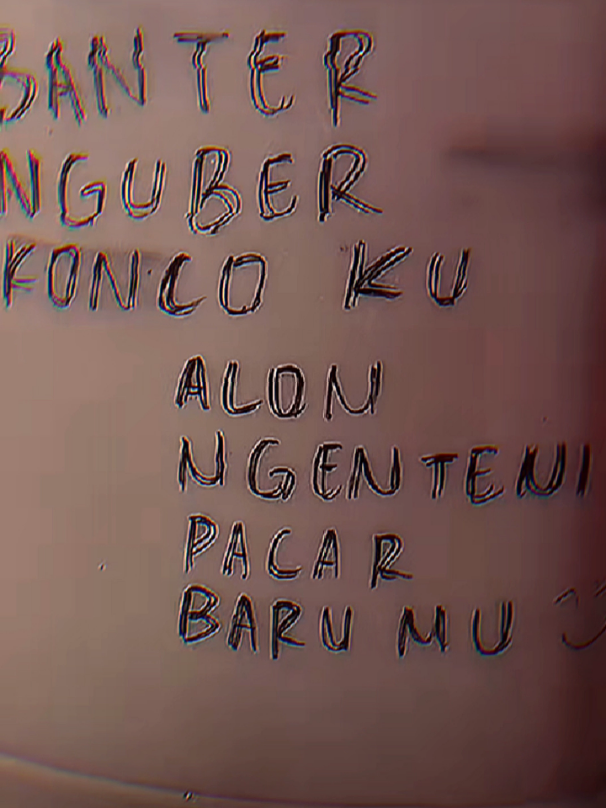 BANTER
NGUBER
KONCO KU
ALON
NGENTENI
PACAR
BARU MU